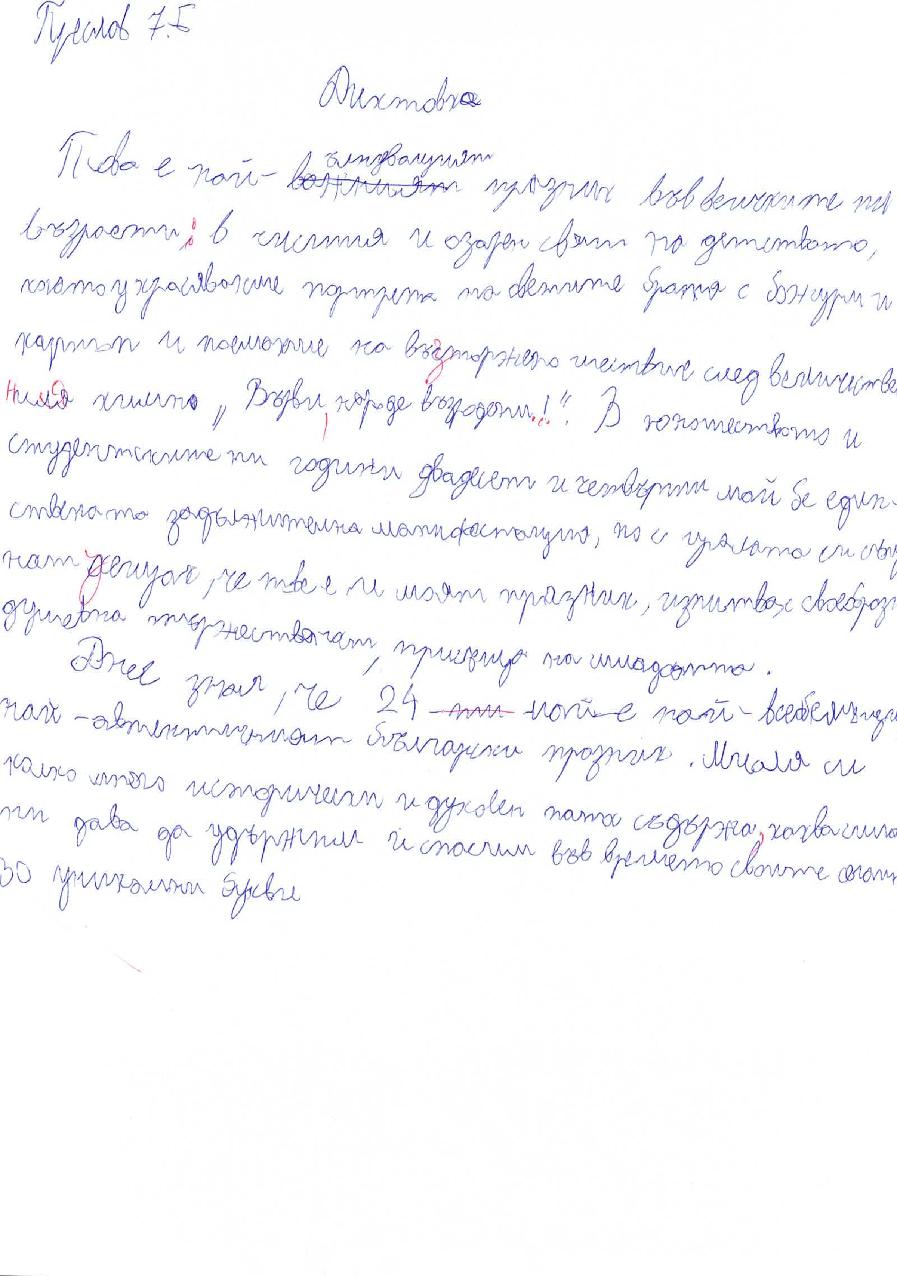 Преслав 7.Б
Диктовка
вълнуващият
Това е най- важният празник във всичките ни
възрасти: в чистия и озарен свят на детството,
когато украсявахме портрета на светите братя с божури и
карамфил и поемахме на възторжено шествие след величестве
ния химно „Върви, народе възродени!". В юношеството и
студентските ни години двадесет и четвърти май бе един-
ствената задължителна манифестация, но с цялата си същ
ност усещах, че тве е и моят празник, изпитвах своеобразн
душевна тържественост, присъща на младостта.
Днес зная, че 24 ти май е най-всебългарски
най-автентичният български празник. Мисля си
колко много исторически и духовен патос съдържа, каква сила
ни дава да удържим и спасим във времето своите
30 уникални букви